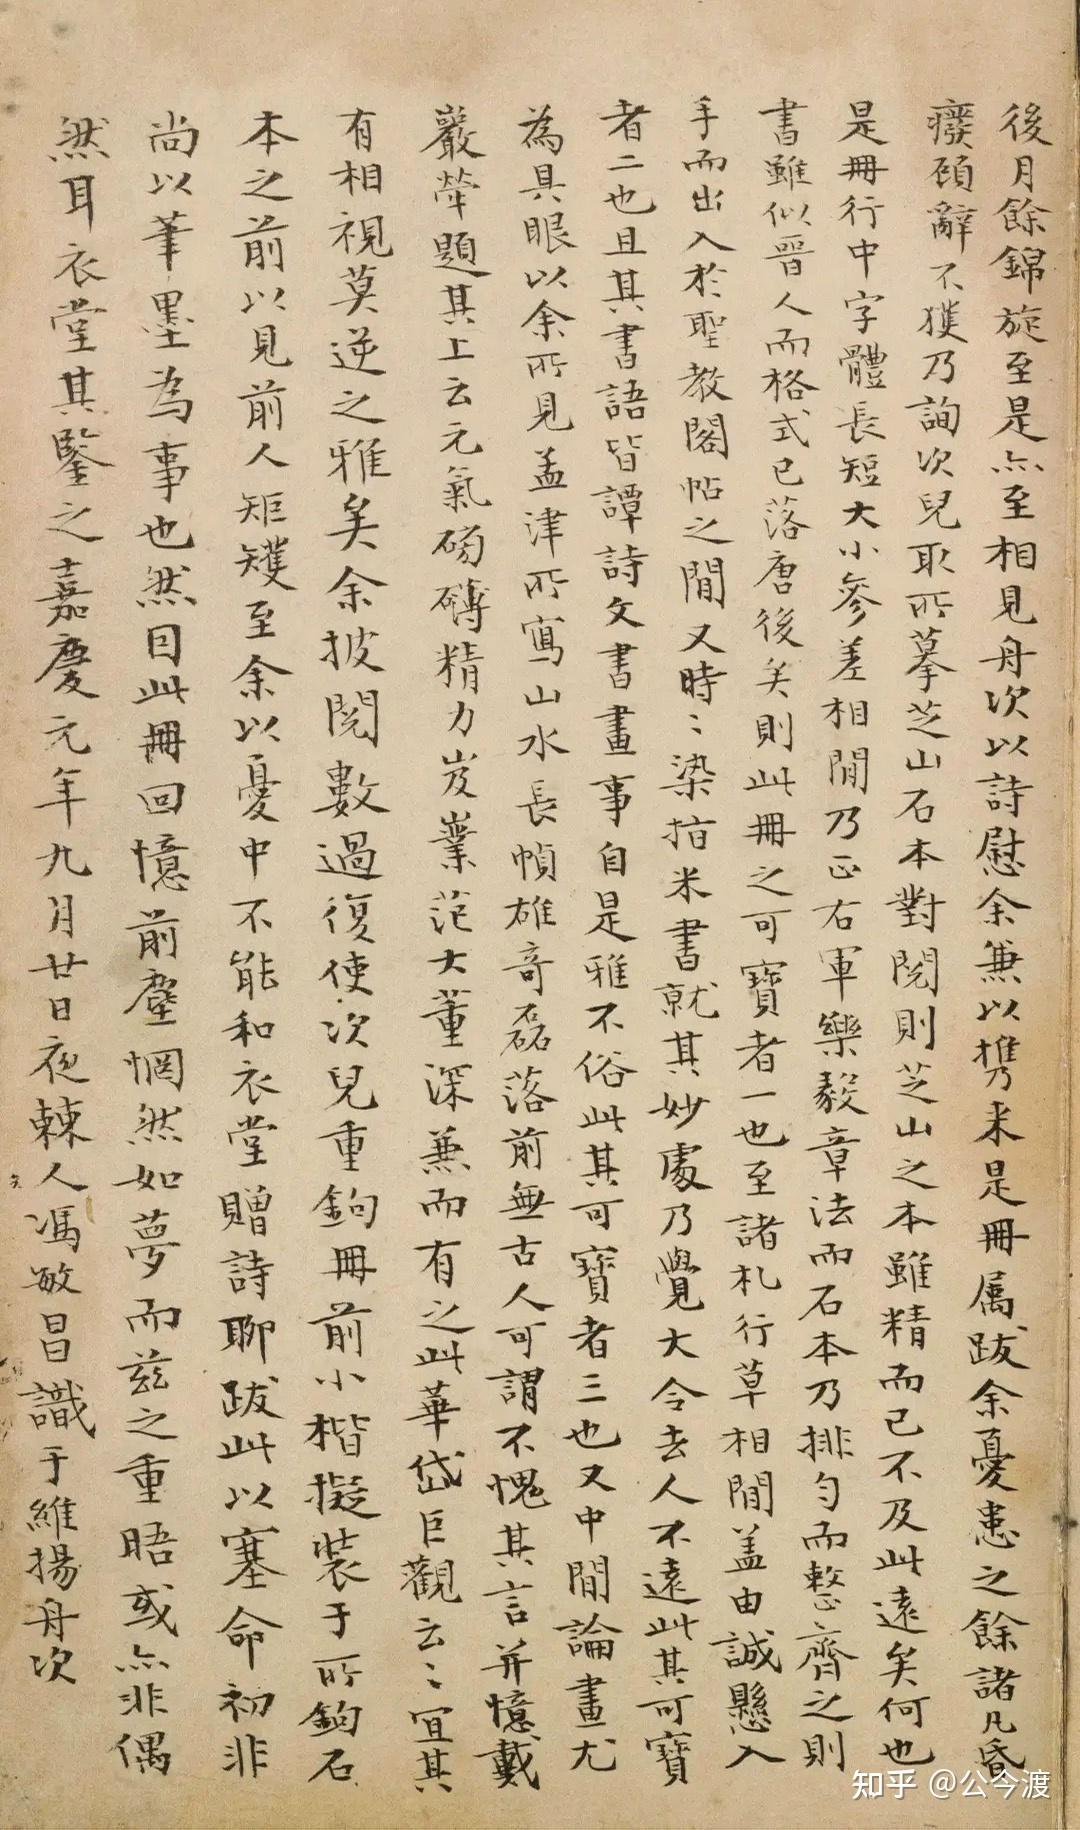 後月餘錦旋至是亦至相見舟次以詩慰余兼以携来是冊属跋余憂患之餘諸凡昏
癈頋辭不獲乃詢次兒取所摹芝山石本對閱則芝山之本雖精而已不及此遠矣何也
是冊行中字體長短大小參差相間乃正右軍樂毅章法而石本乃排勻而整齊之則
書雖似晉人而格式已落唐後矣則此冊之可寶者一也至諸札行草相間盖由誠懸入
手而出入於聖教閣帖之間又時〻染指米書就其妙處乃覺大令去人不遠此其可寶
者二也且其書語皆譚詩文書畫事自是雅不俗此其可寶者三也又中間論畫尤
為具眼以余所見孟津所寫山水長幀雄竒磊落前無古人可謂不愧其言并憶戴
巖犖題其上云元氣磅礴精力岌業范大董深兼而有之此華岱巨觀云〻宜其
有相視莫逆之雅矣余披閱數過復使次兒重鉤冊前小楷擬装于所鉤石
本之前以見前人矩矱至余以憂中不能和衣堂贈詩聊跋此以塞命初非
尚以筆墨為事也然因此冊回憶前塵惘然如夢而兹之重晤或亦非偶
然耳衣堂其鑒之嘉慶元年九月廿日夜棘人馮敏昌識于維揚舟次
知乎 @公今渡